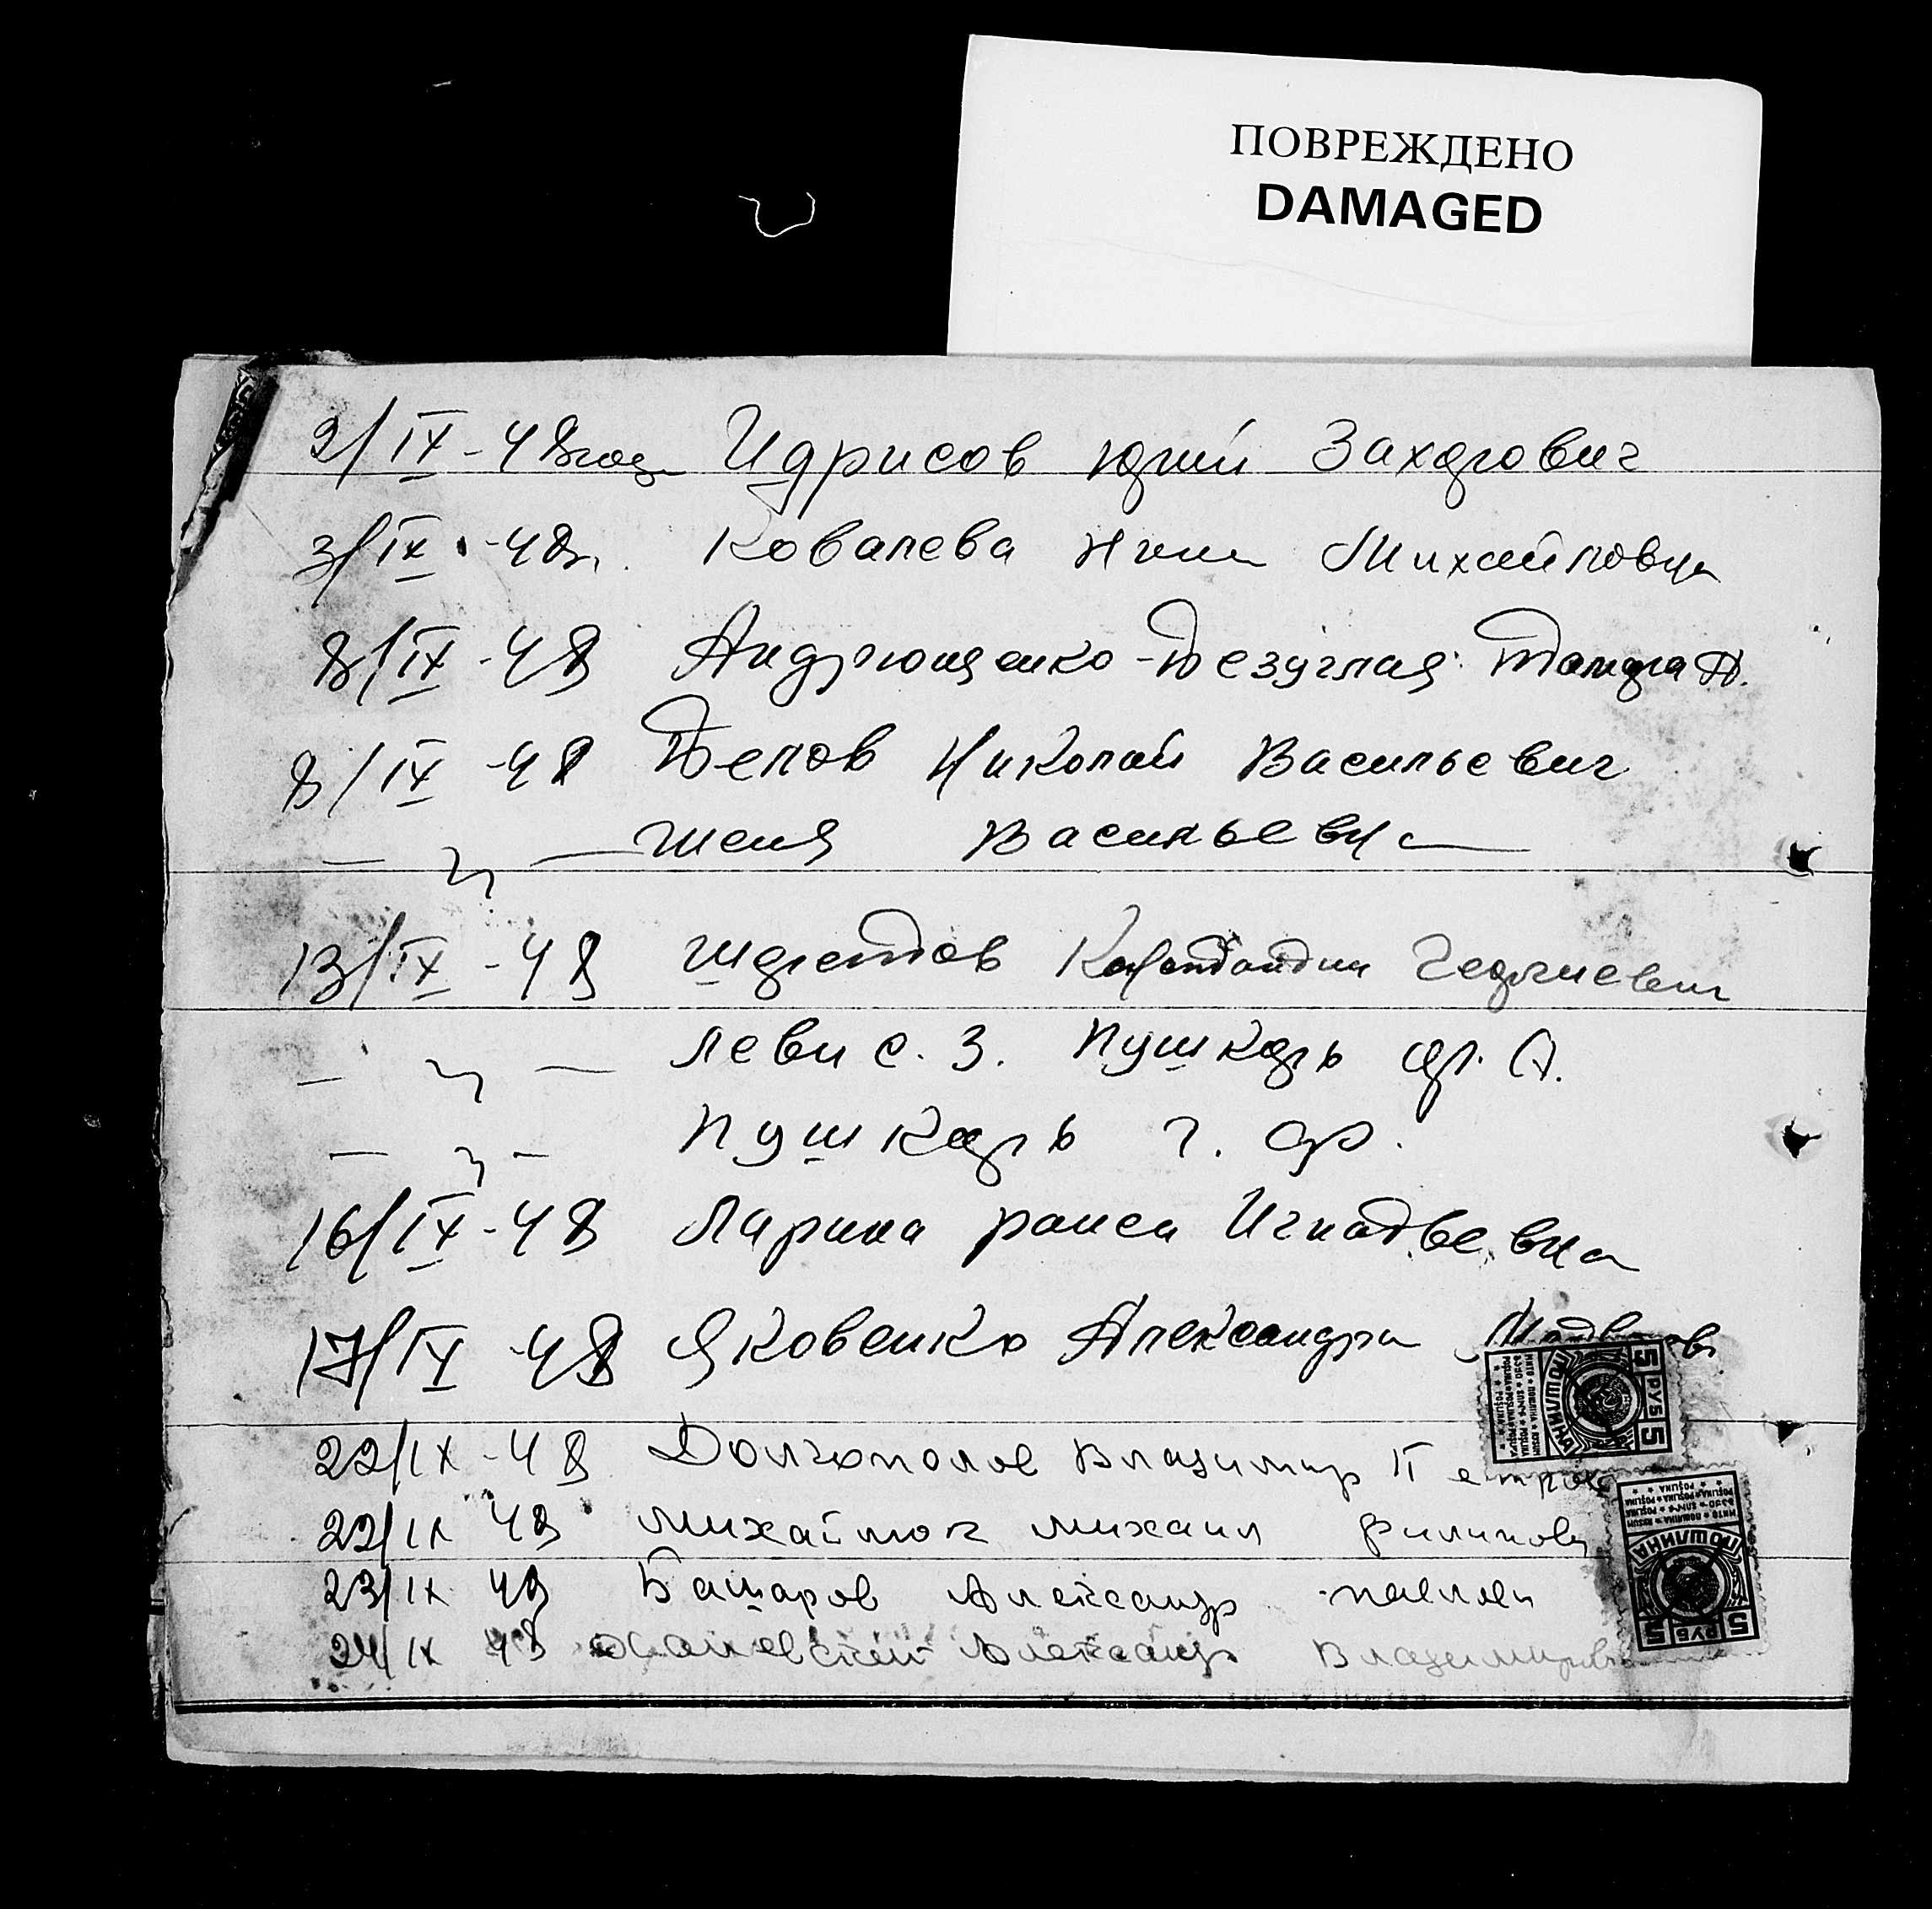 ПОВРЕЖДЕНО
DAMAGED
2/IX-48 года Идрисов Юрий Захарович
3/IX-48г. Ковалева Нина Михайловна
8/IX-48 Андрющенко-Безуглая Тамара А.
8/IX-48 Белов Николай Васильевич
— " — Женя Васильевна
13/IX-48 Шаретов Константин Георгиевич
— " — Леви С. З. Пушкарь А.
— " — Пушкарь Г. Ф.
16/IX-48 Ларина Раиса Игнатьевна
17/IX-48 Яковенко Александра
22/IX-48 Долгополов Владимир Петров
22/IX 48 Михайлюк Михаил Филипов
23/IX 48 Башаров Александр Павлов
24/IX 48 Александр Владимиров
5 РУБ 5
ПОШЛИНА
5 РУБ 5
ПОШЛИНА